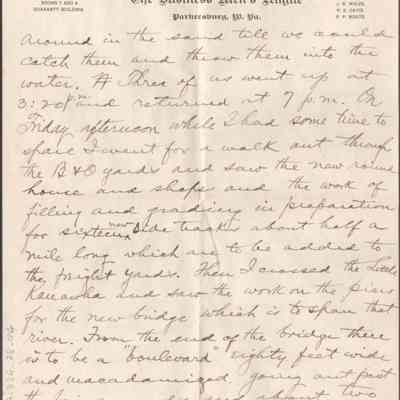 ROOMS 7 AND 8
GUARANTY BUILDING
The Business Men's League
Parkersburg, W. Va.
around in the sand till we could
catch them and throw them into the
water. # Three of us went up at
3:20 p.m. and returned at 7 p.m. On
Friday afternoon while I had some time to
spare I went for a walk out through
the B & O yards and saw the new round
house and shops and the work of
filling and grading in preparation
for sixteen new side tracks about half a
mile long which are to be added to
the freight yards. Then I crossed the Little
Kanawha and saw the work on the piers
for the new bridge which is to span that
river. From the end of the bridge there
is to be a "boulevard" eighty feet wide
and macadamized, going out past
about two